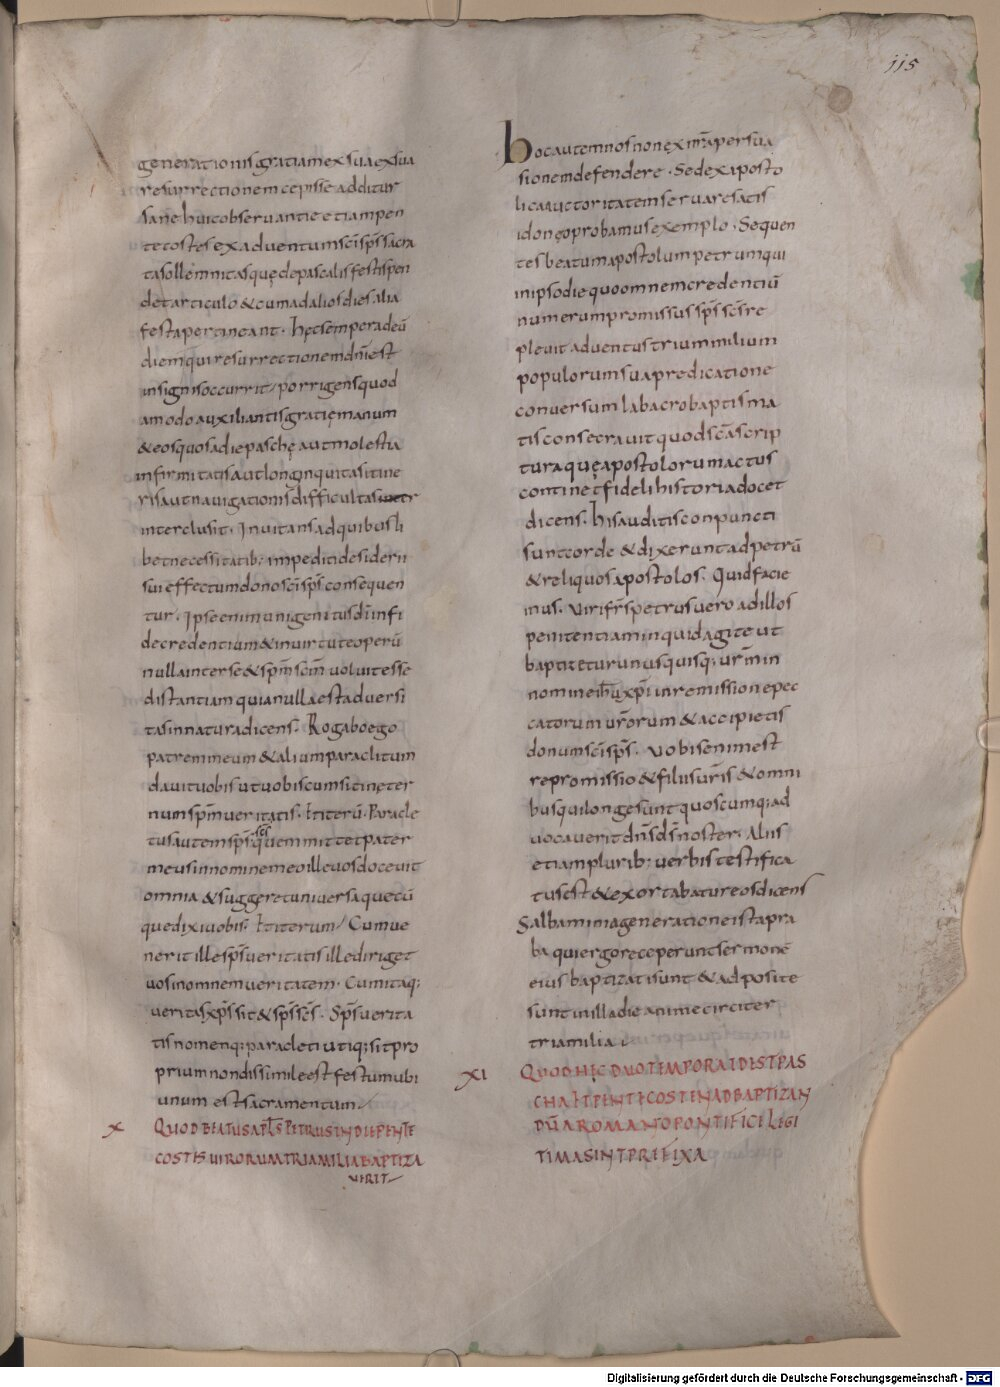 115
generationis gratiam ex sua ex sua
resurrectione m cepisse additur
sane huic obseruantie etiam pen
tecostes ex aduentum sc̄i sp̄s sacra
ta sollemnitas quę de paschalis festi spen
det articulo & cum ad alios dies alia
festa pertineant. hęc semper ad eū
diem qui resurrectionem dn̄i est
insignis occurrit/ porrigens quod
amodo auxiliantis gratię manum
& eos quos a die paschę aut molestia
infirmitatis aut longinquitas itine
ris aut nauigationis difficultas
interclusit. Inuitans ad quibus li
bet necessitatib; impediti desiderii
sui effectum dono sc̄i sp̄s consequen
tur. Ipse enim unigenitus dī in fi
de credentium & in uirtute operū
nulla inter se & sp̄m sc̄m uoluit esse
distantiam quia nulla est aduersi
tas in natura dicens. Rogabo ego
patrem meum & alium paraclitum
dauit uobis ut uobiscum sit in ęter
num sp̄m ueritatis. Et iterū. Paracle
tus autem sp̄s sc̄s quem mittet pater
meus in nomine meo ille uos docevit
omnia & suggeret uniuersa quecū
que dixi uobis. Et iterum/ Cum ue
nerit ille sp̄s ueritatis ille diriget
uos in omnem ueritatem. Cum itaq;
ueritas xp̄s sit & sp̄s sc̄s. Sp̄s uerita
tis nomenq; paracleti utiq; sit pro
prium non dissimile est festum ubi
unum est sacramentum/
X QUOD BEATUS APL̄S PETRUS IN DIE PENTE
COSTES UIRORUM TRIA MILIA BAPTIZA
UERIT
hoc autem nos non ex nr̄a persua
sionem defendere. Sed ex aposto
lica auctoritatem seruare satis
idonęo probamus exemplo. Sequen
tes beatum apostolum petrum qui
in ipso die quo omnem credentiū
numerum promissus sp̄s sc̄s re
pleuit aduentus trium milium
populorum sua predicatione
conuersum labacro baptisma
tis consecrauit quod sc̄a scrip
tura quę apostolorum actus
continet fideli historia docet
dicens. His auditis conpuncti
sunt corde & dixerunt ad petrū
& reliquos apostolos. Quid facie
mus. Uiri fr̄s petrus uero ad illos
penitentiam inquid agite ut
baptitetur unusquisq; ur̄m in
nomine ih̄u xp̄i in remissione pec
catorum ur̄orum & accipietis
donum sc̄i sp̄s. Uobis enim est
repromissio & filiis ur̄is & omni
bus qui longe sunt quoscumq; ad
uocauerit dn̄s dś noster. Aliis
etiam plurib; uerbis testifica
tus est & exortabatur eos dicens
Salbamini a generatione ista pra
ba qui ergo receperunt sermonē
eius baptizati sunt & adposite
sunt in illa die anime circiter
tria milia.
XI QUOD HĘC DUO TEMPORA ID EST PAS
CHA ET PENTECOSTEN AD BAPTIZAN
DŪ A ROMANO PONTIFICI LEGI
TIMA SINT PREFIXA
Digitalisierung gefördert durch die Deutsche Forschungsgemeinschaft - DFG